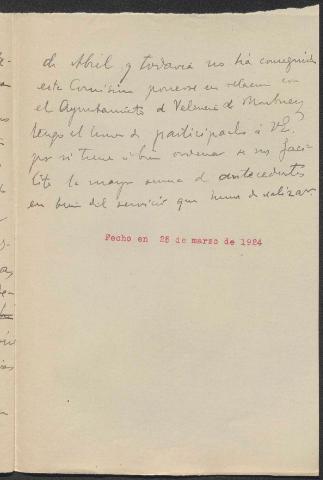 de Abril, y todavía no ha conseguido
esta Comisión ponerse en relación con
el Ayuntamiento de Valencia de Mombuey,
tengo el honor de participarlo á Vd.
por si tiene á bien ordenar se nos faci-
lite la mayor suma de antecedentes
en bien del servicio que hemos de realizar.
Fecho en 28 de marzo de 1924